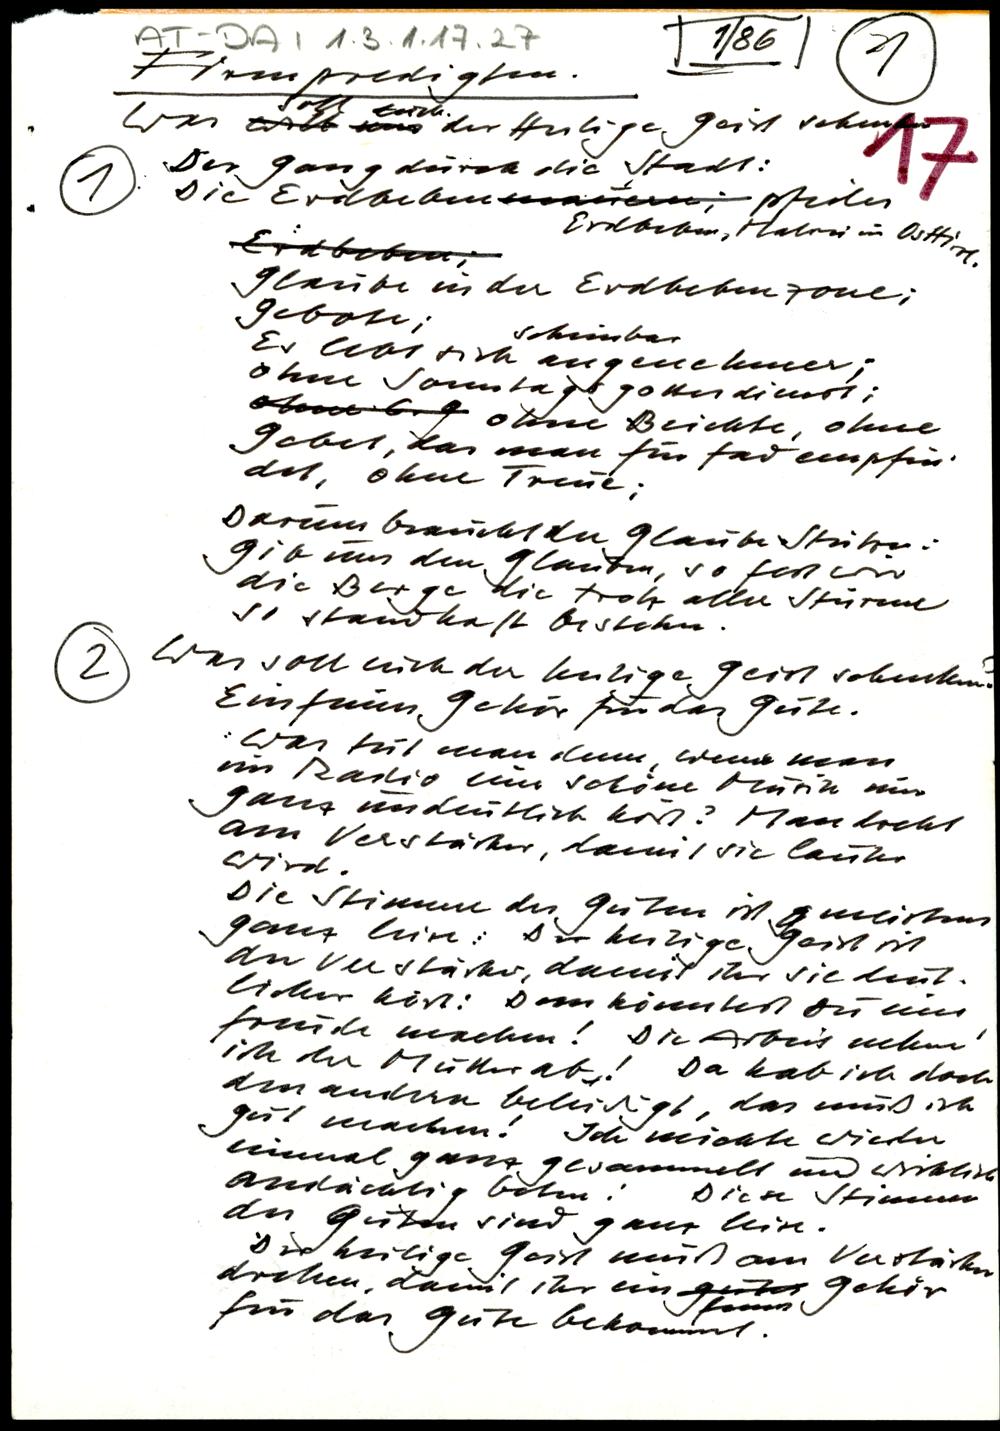 AT-DAI 1.3.1.17.27
1/86
21
Firmpredigten.
17
soll euch
Was wird uns der Heilige Geist schenken
1 Der Gang durch die Stadt:
Die Erdbebenmauern; pfeiler
Erdbeben, Matrei in Osttirol.
Erdbeben;
Glaube in der Erdbebenzone;
Gebote;
scheinbar
Es lebt sich angenehmer;
ohne Sonntagsgottesdienst;
ohne Beichte, ohne
Gebet, das man für fad empfin-
det, ohne Treue;
Darum braucht der Glaube Stützen:
Gib uns den Glauben, so fest wie
die Berge die trotz aller Stürme
so standhaft bestehen.
2 Was soll euch der heilige Geist schenken?
Ein feines Gehör für das Gute.
Was tut man denn, wenn man
im Radio eine schöne Musik nur
ganz undeutlich hört? Man dreht
am Verstärker, damit sie lauter
wird.
Die Stimme des Guten ist meistens
ganz leise: Der heilige Geist ist
der Verstärker, damit ihr sie deut-
licher hört: Dem könntest du eine
Freude machen! Die Arbeit nehme
ich der Mutter ab! Da hab ich doch
den andern beleidigt, das muß ich
gut machen! Ich möchte wieder
einmal ganz gesammelt und wirklich
andächtig beten! Diese Stimmen
des Guten sind ganz leise.
Der heilige Geist muß am Verstärker
drehen, damit ihr ein gutes Gehör
feines
für das Gute bekommt.